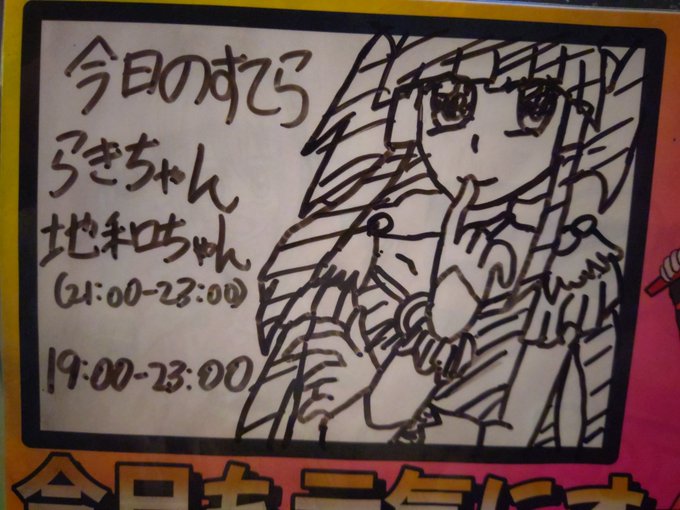 今日のすてら
らきちゃん
地和ちゃん
(21:00-23:00)
19:00-23:00
今日も元気にす